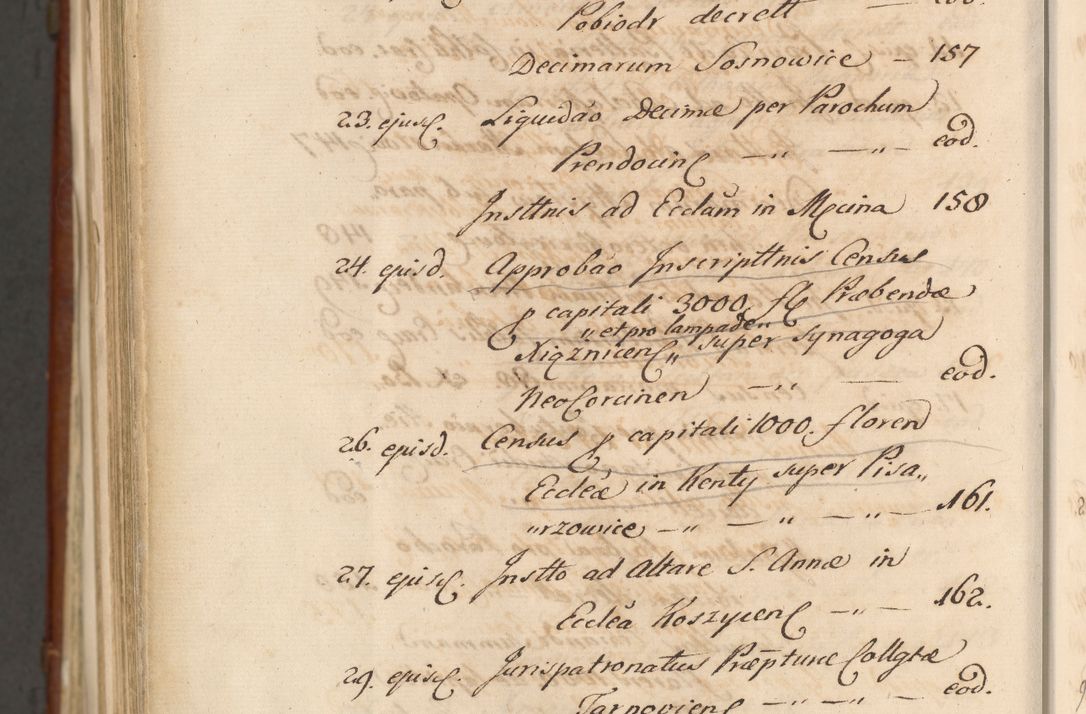 Pobiedr decrett — eod.
Decimarum Sosnowice — 157
23. ejusd. Liquidao Decimæ per Parochum
Prendocin — „ — „ — eod.
Insttnis ad Ecclam in Mɐcina 158
24. ejusd. Approbao Inscripttnis Census
p capitali 3000. fl Præbendæ
„ et pro lampade „
Xiąznicen „ super Synagoga
NeoCorcinen — „ — eod.
26. ejusd. Census p capitali 1000. floren
Eccleæ in Kenty super Pisa„
„rzowice — „ — „ — „ — 161.
27. ejusd. Instto ad Altare S. Annæ in
Ecclea Koszycen — „ — 162.
29. ejusd. Jurispatronatus Præpturæ Collgtæ
Tarnovien — „ — „ — eod.